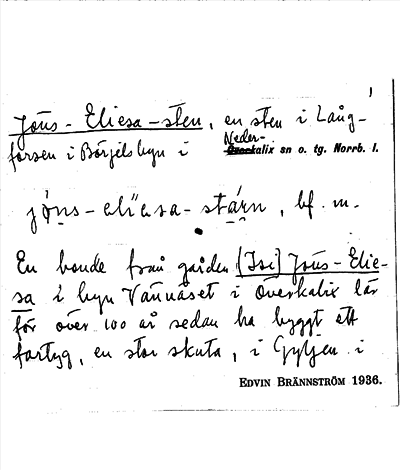 1
Jöns-Eliesa-sten, en sten i Lång-
forsen i Börjelsbyn i Neder-kalix sn o. tg. Norrb. l.
jö̀ns-eliesa-stæ̀rn, bf. m.
En bonde från gården (Isi) Jöns-Elie-
sa i byn Vännäset i Överkalix lär
för över 100 år sedan ha byggt ett
fartyg, en stor skuta, i Gyljen i
EDVIN BRÄNNSTRÖM 1936.